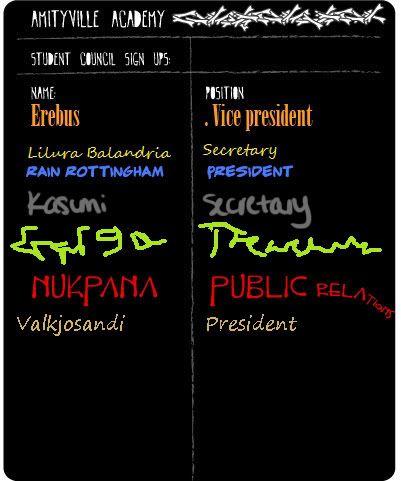 AMITYVILLE ACADEMY
STUDENT COUNCIL SIGN UPS:
NAME: POSITION
Erebus . Vice president
Lilura Balandria Secretary
RAIN ROTTINGHAM PRESIDENT
Kasumi Secretary
NUKPANA PUBLIC RELATIONS
Valkjosandi President